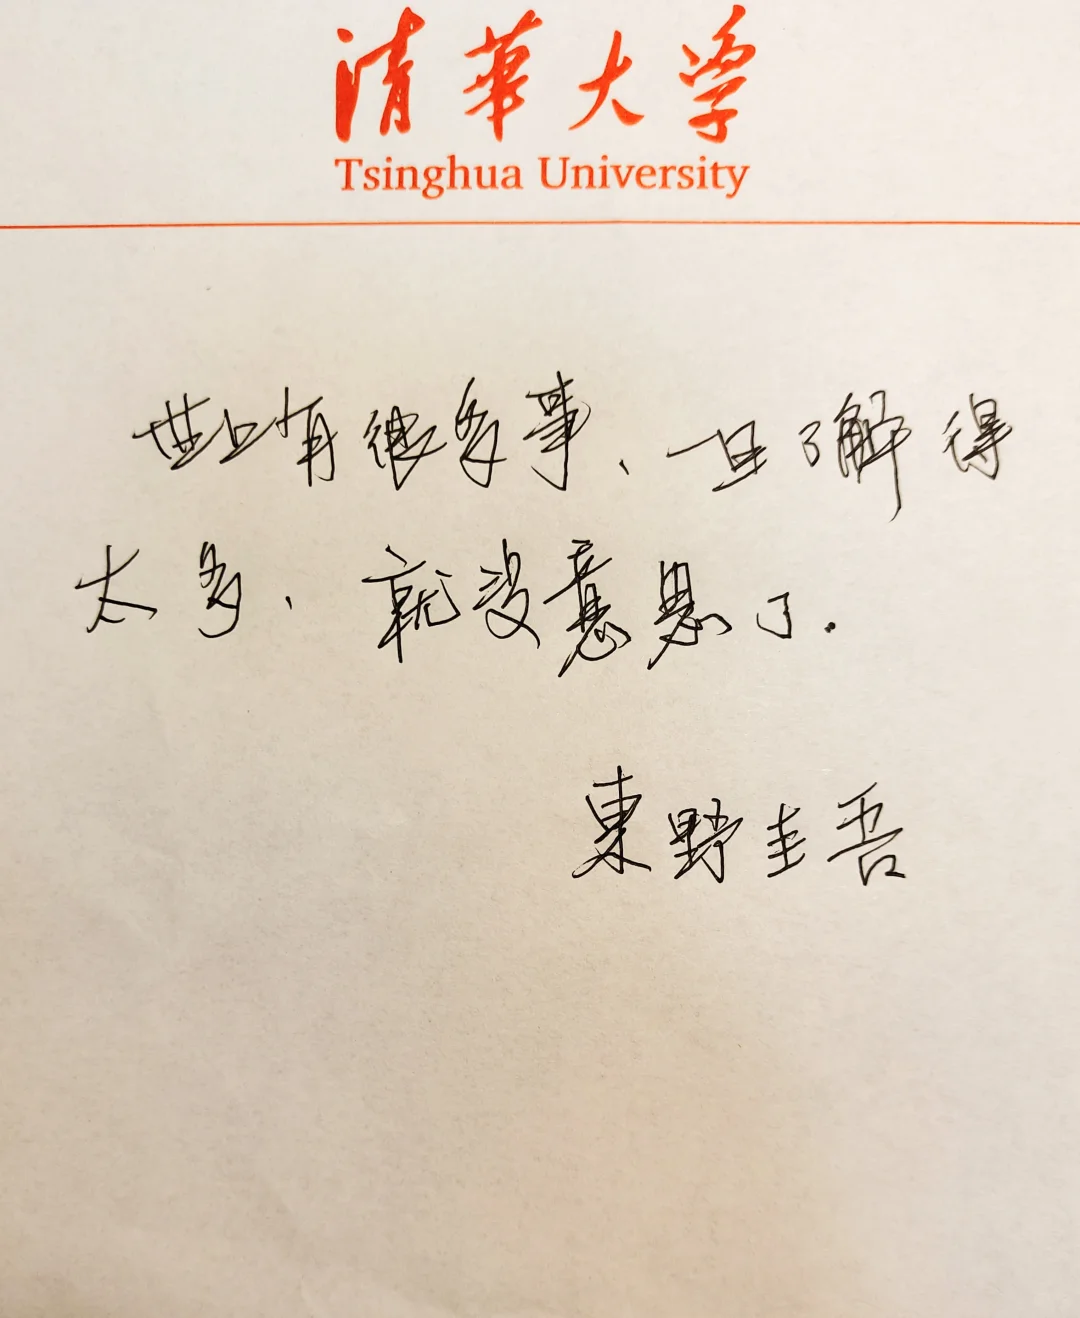 清華大学
Tsinghua University
世上有很多事、一旦了解得
太多、就没意思了.
東野圭吾